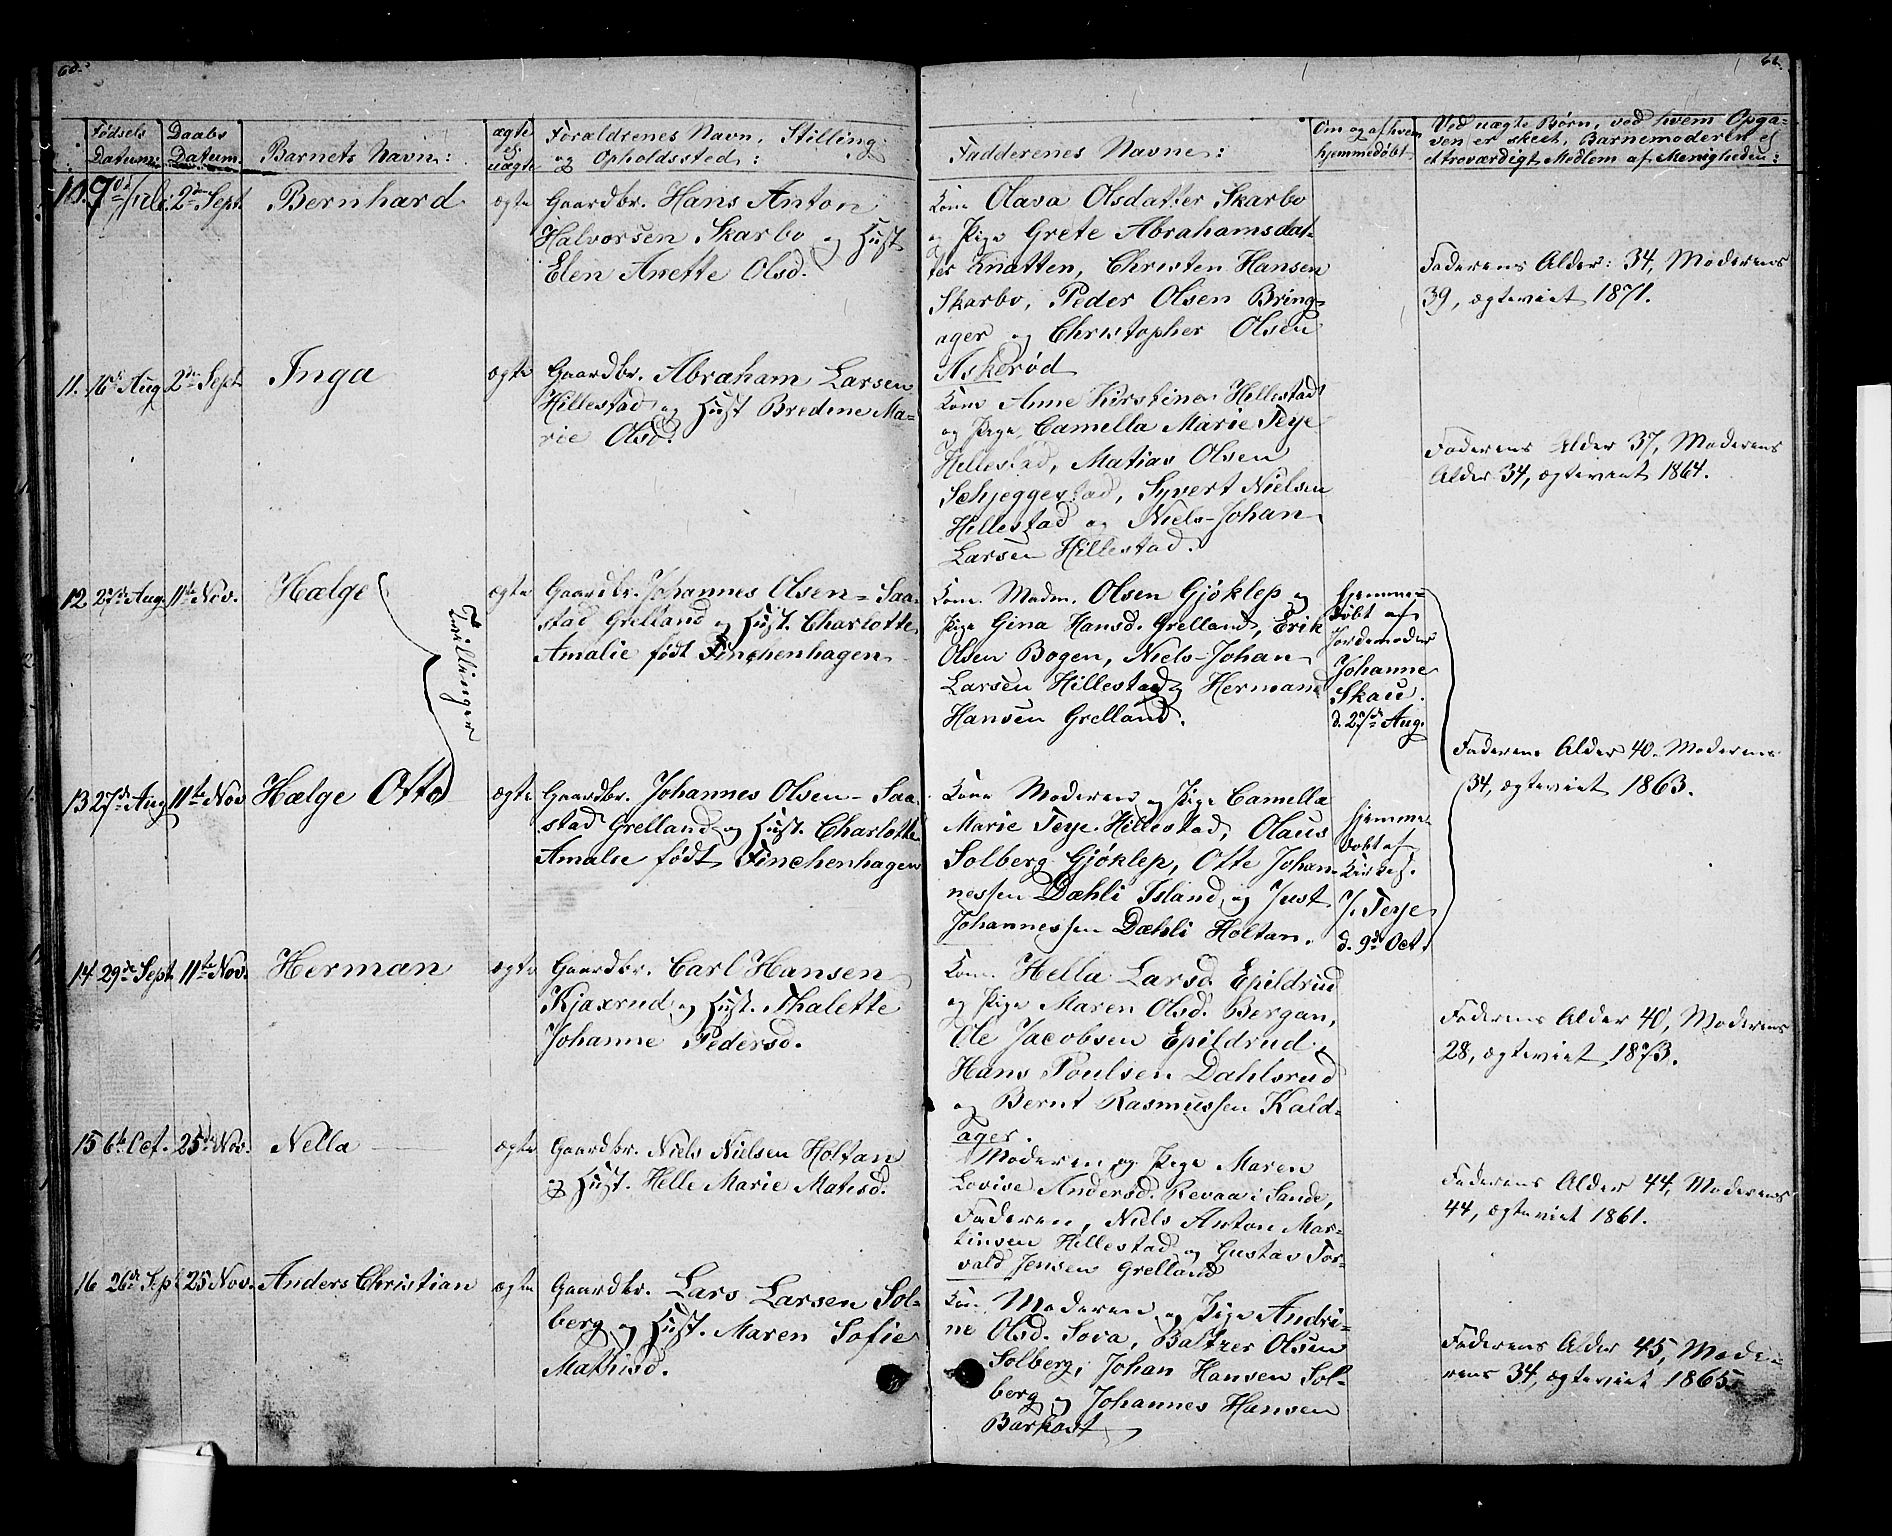 60.
Fødsels Datum: Daabs Datum. Barnets Navn: ægte el. uægte Forældrenes Navn, Stilling og Opholdssted:
10. 7de Juli 2den Sept. Bernhard ægte Gaardbr. Hans Anton
Halvorsen Skarbo og Hust
Elen Anette Olsd.
11. 16de Aug. 2den Sept. Inga ægte Gaardbr. Abraham Larsen
Hillestad og Hust Bredine Ma-
rie Olsd.
12 27de Aug. 11te Nov. Hælge ægte Gaardbr. Johannes Olsen-Saa-
stad Grelland og Hust. Charlotte
Amalie født Finchenhagen
Tvillinger
13 27de Aug 11te Nov Hælge Otto ægte Gaardbr. Johannes Olsen-Saa-
stad Grelland og Hust. Charlotte
Amalie født Finchenhagen
14 29de Sept. 11te Nov. Herman ægte Gaardbr. Carl Hansen
Kjaxrud og Hust. Thalette
Johanne Pedersd.
15 6te Oct. 25de Nov. Nella ægte Gaardbr. Niels Nielsen Holtan
og Hust. Helle Marie Matisd.
16 26de Sept 25 Nov. Anders Christian ægte Gaardbr. Lars Larsen Sol-
berg og Hust. Maren Sofie
Mathisd.
Fadderenes Navne:
Om og af hvem
hjemmedøbt
Ved uægte Børn, ved hvem Opga-
ven er skeet, Barnemoderen el
et troværdigt Medlem af Menigheden:
Kone Olava Olsdatter Skarbo
og Pige Grete Abrahamsdat-
ter Knatten, Christen Hansen
Skarbo, Peder Olsen Bring-
ager og Christopher Olsen
Askerød
Faderens Alder: 34, Moderens
39, ægteviet 1871.
Kone Anne Kirstine Hillestad
og Pige Camella Marie Teye
Hellestad, Matias Olsen
Schjeggestad, Syvert Nielsen
Hillestad og Niels-Johan
Larsen Hillestad.
Faderens Alder 37, Moderens
Alder 34, ægteviet 1864.
Kone Madm. Olsen Gjøklep og
Pige Gina Hansd. Grelland, Erik
Olsen Bogen, Niels-Johan
Larsen Hillestad og Herman
Hansen Grelland.
Hjemme-
døbt af
Jordemoder
Johanne
Skau.
d. 27de Aug.
Faderens Alder 40. Moderens
34, ægteviet 1863.
Kone Moderen og Pige Camella
Marie Teye Hillestad, Olaus
Solberg Gjøklep, Otte Johan-
nessen Dæhli Island og Just
Johannessen Dæhli Holtan.
Hjemme-
døbt af
J. Teye
d. 9de Oct.
Kone Hella Larsd. Epildrud
og Pige Maren Olsd. Bergan,
Ole Jacobsen Epildrud,
Hans Poulsen Dahlsrud
og Bernt Rasmussen Kald-
ager.
Faderens Alder 40, Moderens
28, ægteviet 1873.
Moderen og Pige Maren
Lovise Andersd. Revaa i Sande,
Faderen, Niels Anton Mar-
tinsen Hillestad og Gustav Tor-
vald Jensen Grelland
Faderens Alder 44, Moderens
44, ægteviet 1861.
Kone Moderen og Pige Andri-
ne Olsd. Sova, Baltzer Olsen
Solberg, Johan Hansen Sol-
berg og Johannes Hansen
Barkost
Faderens Alder 45, Mode-
rens 34, ægteviet 1865.